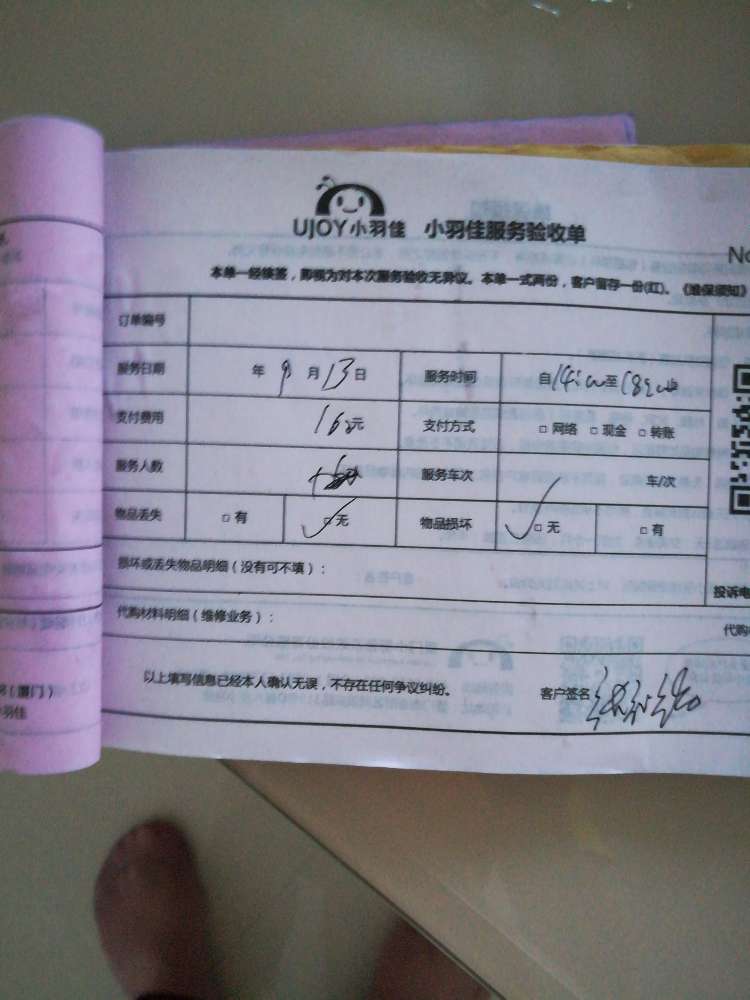 UJOY小羽佳 小羽佳服务验收单
No
本单一经签,即视为对本次服务验收无异议。本单一式两份,客户留存一份(红)。《维保须知》
订单编号
服务日期 年 9 月 13 日 服务时间 自14:00至18:00
支付费用 160元 支付方式 □ 网络 □ 现金 □ 转账
服务人数 服务车次 车/次
物品丢失 □ 有 □ 无 物品损坏 □ 无 □ 有
损坏或丢失物品明细(没有可不填):
投诉电
代购材料明细(维修业务):
代购
以上填写信息已经本人确认无误,不存在任何争议纠纷。 客户签名
(厦门)
羽佳